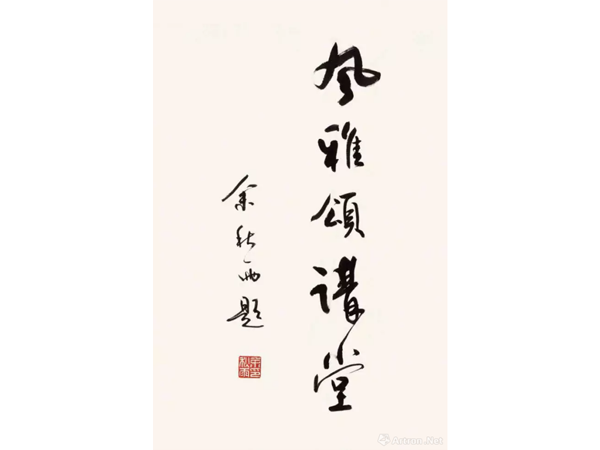 风雅頌講堂
余秋雨題
Artron.Net